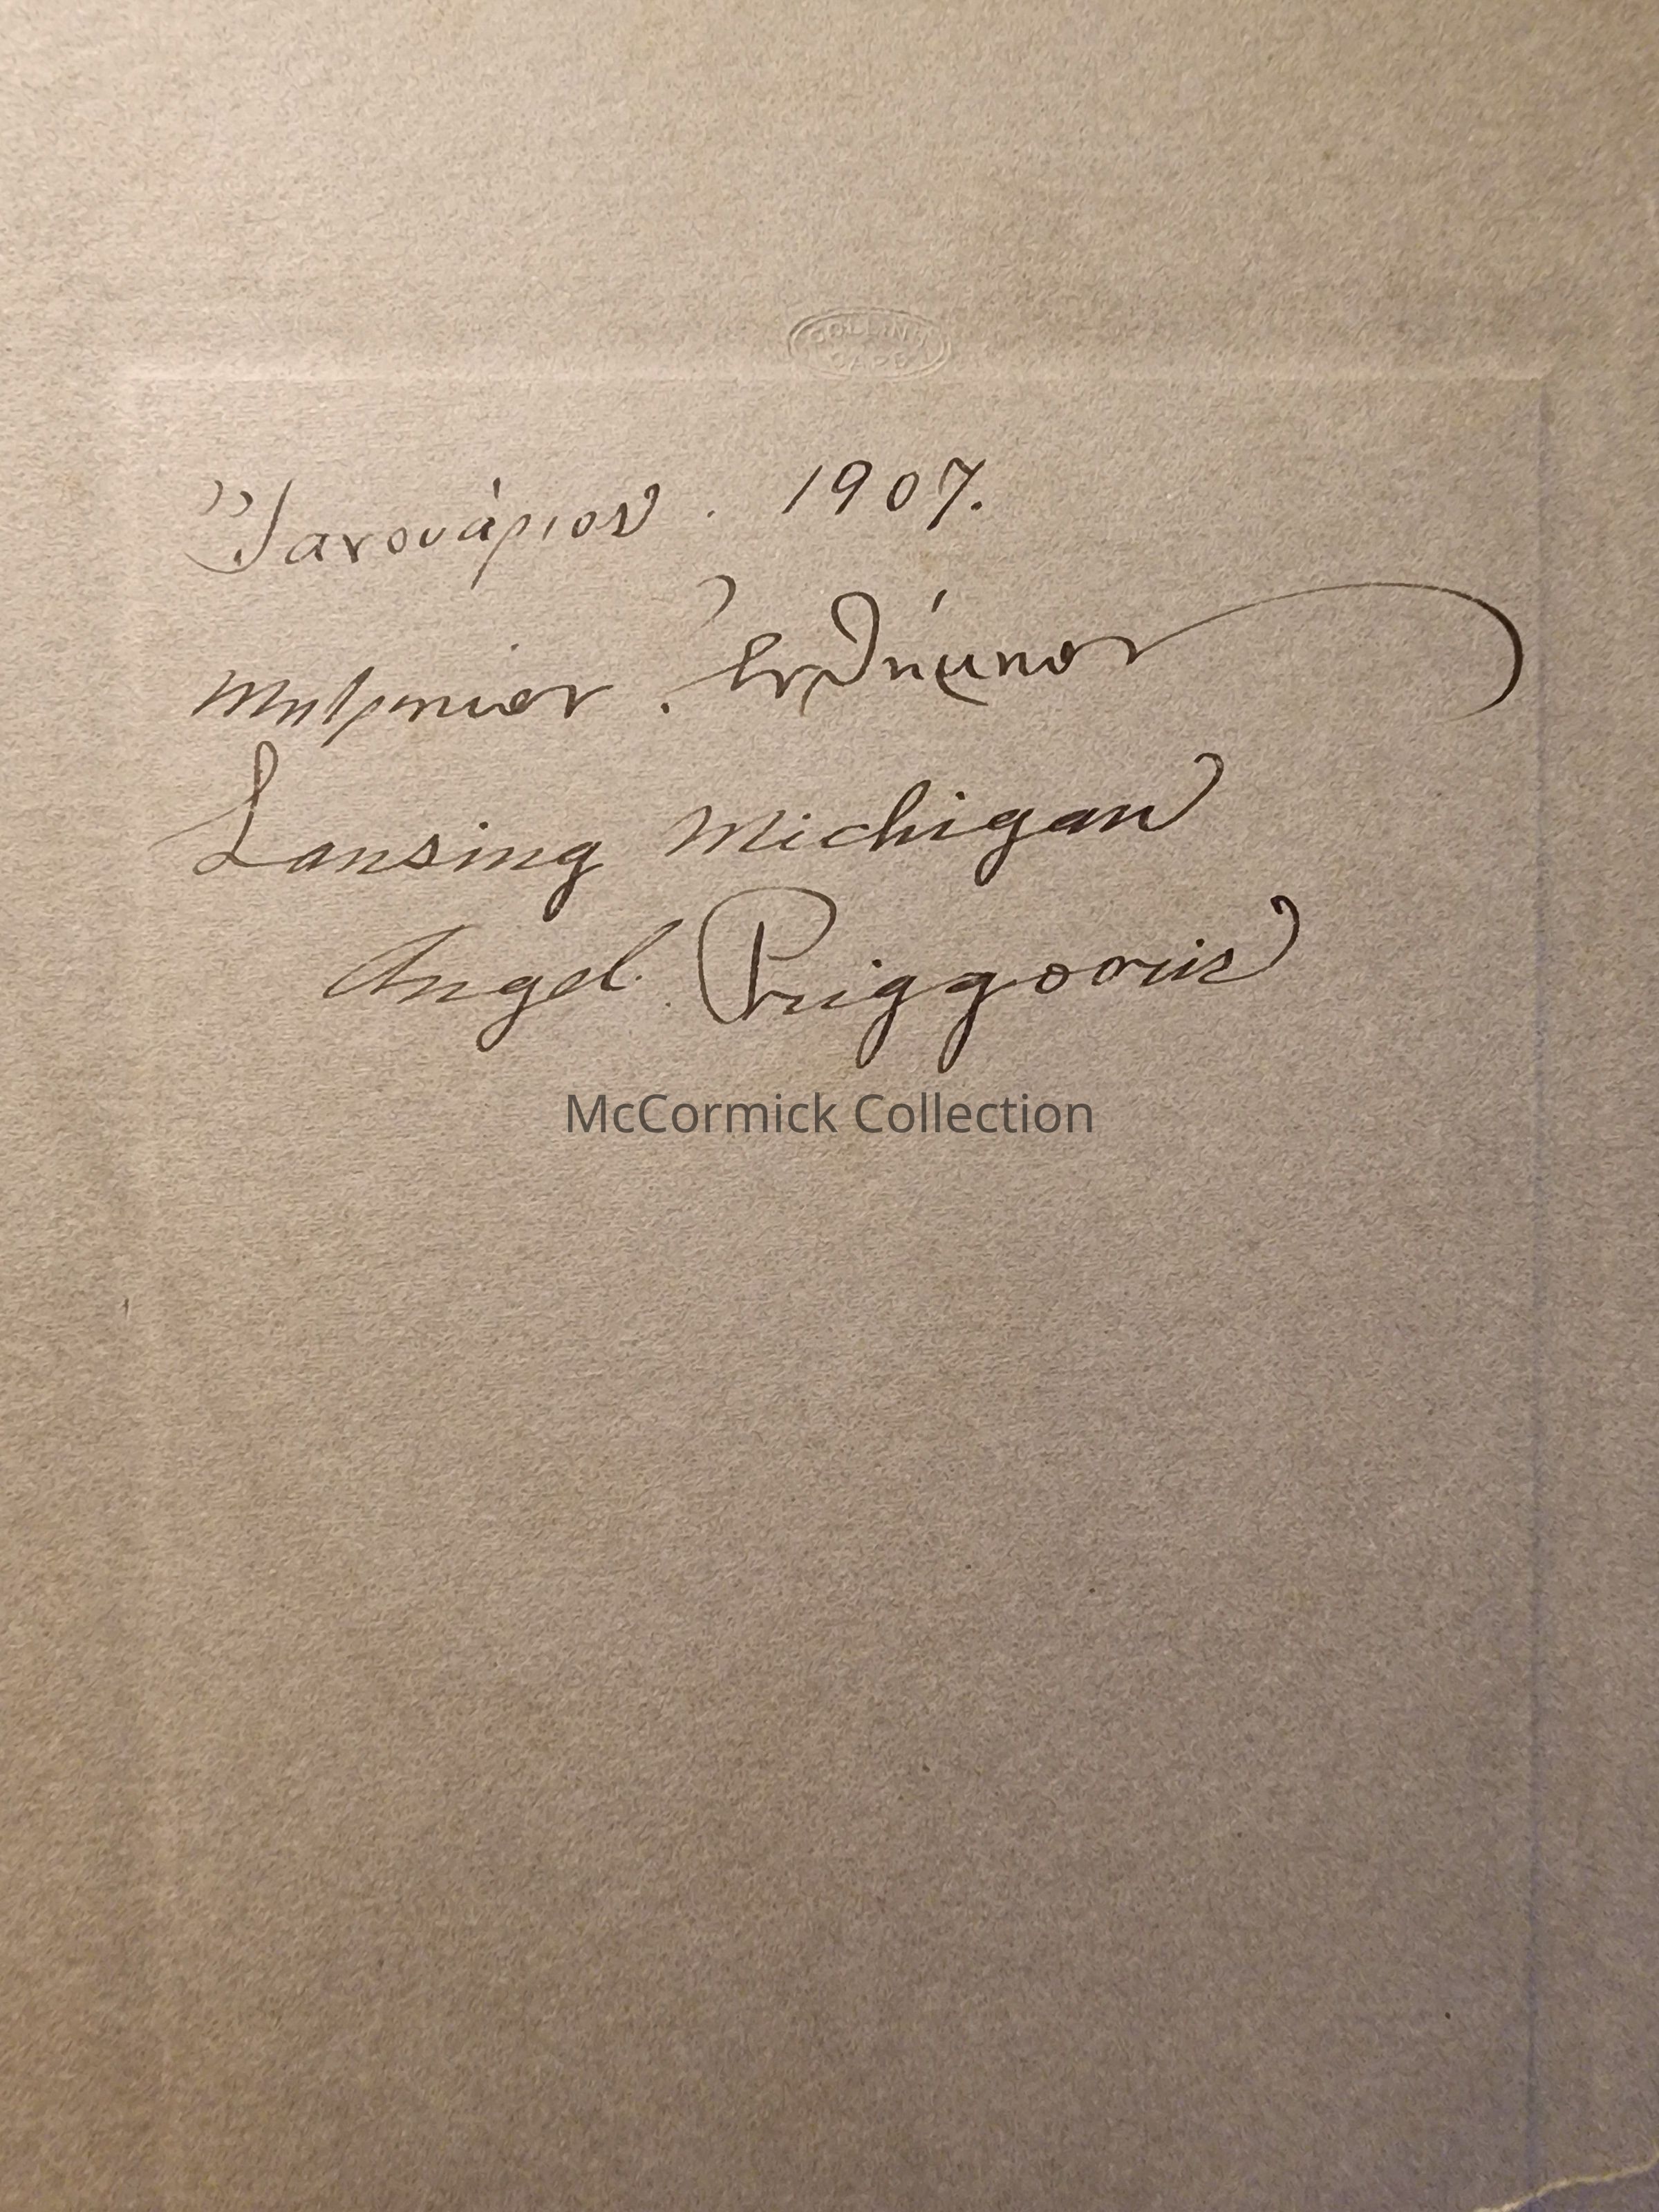 COLLINS
CARD
Ἰανουάριος. 1907.
Μητρικόν. Ἐνθύμιον
Lansing Michigan
Angel. Priggooris
McCormick Collection